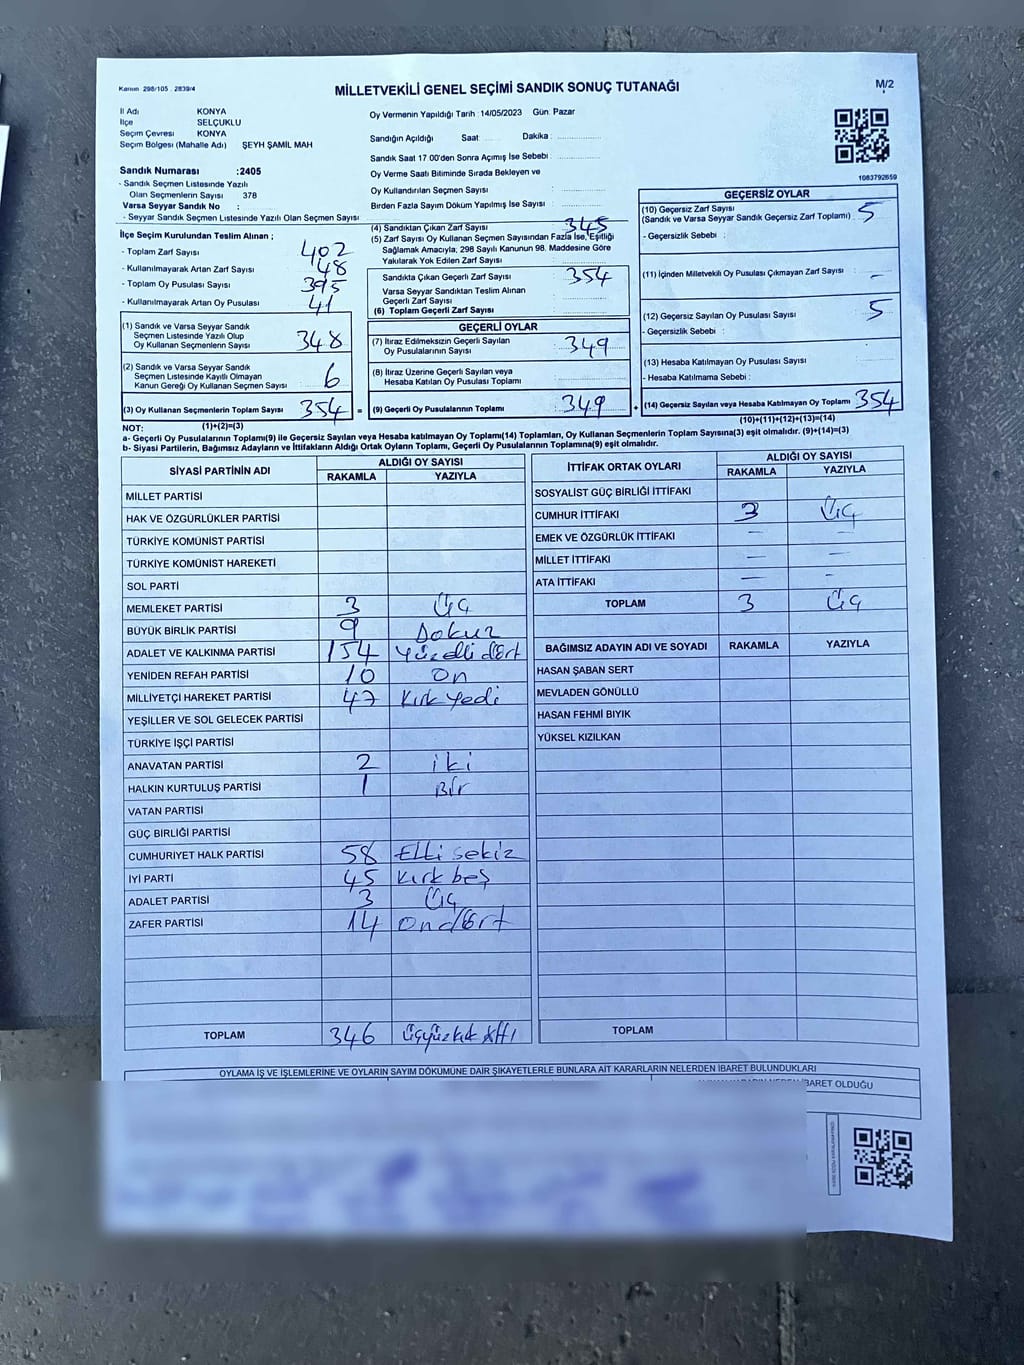 Kanun 298/105 . 2839/4
MİLLETVEKİLİ GENEL SEÇİMİ SANDIK SONUÇ TUTANAĞI
M/2
İl Adı KONYA
İlçe SELÇUKLU
Seçim Çevresi KONYA
Seçim Bölgesi (Mahalle Adı) ŞEYH ŞAMİL MAH
Sandık Numarası :2405
- Sandık Seçmen Listesinde Yazılı
Olan Seçmenlerin Sayısı 378
Varsa Seyyar Sandık No :
- Seyyar Sandık Seçmen Listesinde Yazılı Olan Seçmen Sayısı
Oy Vermenin Yapıldığı Tarih :14/05/2023 Gün: Pazar
Sandığın Açıldığı Saat: Dakika :
Sandık Saat 17 00'den Sonra Açımış İse Sebebi :
Oy Verme Saati Bitiminde Sırada Bekleyen ve
Oy Kullandırılan Seçmen Sayısı :
Birden Fazla Sayım Döküm Yapılmış İse Sayısı :
1083792659
İlçe Seçim Kurulundan Teslim Alınan ;
- Toplam Zarf Sayısı 402
- Kullanılmayarak Artan Zarf Sayısı 48
- Toplam Oy Pusulası Sayısı 395
- Kullanılmayarak Artan Oy Pusulası 41
(1) Sandık ve Varsa Seyyar Sandık
Seçmen Listesinde Yazılı Olup
Oy Kullanan Seçmenlerin Sayısı 348
(2) Sandık ve Varsa Seyyar Sandık
Seçmen Listesinde Kayıtlı Olmayan
Kanun Gereği Oy Kullanan Seçmen Sayısı 6
(3) Oy Kullanan Seçmenlerin Toplam Sayısı 354 =
(1)+(2)=(3)
(4) Sandıktan Çıkan Zarf Sayısı 345
(5) Zarf Sayısı Oy Kullanan Seçmen Sayısından Fazla İse, Eşitliği
Sağlamak Amacıyla, 298 Sayılı Kanunun 98. Maddesine Göre
Yakılarak Yok Edilen Zarf Sayısı :
Sandıkta Çıkan Geçerli Zarf Sayısı 354
Varsa Seyyar Sandıktan Teslim Alınan
Geçerli Zarf Sayısı
(6) Toplam Geçerli Zarf Sayısı
GEÇERLİ OYLAR
(7) İtiraz Edilmeksizin Geçerli Sayılan
Oy Pusulalarının Sayısı : 349
(8) İtiraz Üzerine Geçerli Sayılan veya
Hesaba Katılan Oy Pusulası Toplamı
(9) Geçerli Oy Pusulalarının Toplamı 349 +
GEÇERSİZ OYLAR
(10) Geçersiz Zarf Sayısı
(Sandık ve Varsa Seyyar Sandık Geçersiz Zarf Toplamı) : 5
- Geçersizlik Sebebi :
(11) İçinden Milletvekili Oy Pusulası Çıkmayan Zarf Sayısı : -
(12) Geçersiz Sayılan Oy Pusulası Sayısı : 5
- Geçersizlik Sebebi :
(13) Hesaba Katılmayan Oy Pusulası Sayısı
- Hesaba Katılmama Sebebi :
(14) Geçersiz Sayılan veya Hesaba Katılmayan Oy Toplamı 354
(10)+(11)+(12)+(13)=(14)
NOT:
a- Geçerli Oy Pusulalarının Toplamı(9) ile Geçersiz Sayılan veya Hesaba katılmayan Oy Toplamı(14) Toplamları, Oy Kullanan Seçmenlerin Toplam Sayısına(3) eşit olmalıdır. (9)+(14)=(3)
b- Siyasi Partilerin, Bağımsız Adayların ve İttifakların Aldığı Ortak Oyların Toplamı, Geçerli Oy Pusulalarının Toplamına(9) eşit olmalıdır.
SİYASİ PARTİNİN ADI ALDIĞI OY SAYISI
RAKAMLA YAZIYLA
MİLLET PARTİSİ
HAK VE ÖZGÜRLÜKLER PARTİSİ
TÜRKİYE KOMÜNİST PARTİSİ
TÜRKİYE KOMÜNİST HAREKETİ
SOL PARTİ
MEMLEKET PARTİSİ 3 Üç
BÜYÜK BİRLİK PARTİSİ 9 Dokuz
ADALET VE KALKINMA PARTİSİ 154 Yüzelli dört
YENİDEN REFAH PARTİSİ 10 On
MİLLİYETÇİ HAREKET PARTİSİ 47 Kırk yedi
YEŞİLLER VE SOL GELECEK PARTİSİ
TÜRKİYE İŞÇİ PARTİSİ
ANAVATAN PARTİSİ 2 iki
HALKIN KURTULUŞ PARTİSİ 1 Bir
VATAN PARTİSİ
GÜÇ BİRLİĞİ PARTİSİ
CUMHURİYET HALK PARTİSİ 58 Elli sekiz
İYİ PARTİ 45 Kırk beş
ADALET PARTİSİ 3 Üç
ZAFER PARTİSİ 14 Ondört
TOPLAM 346 Üçyüzkırk Altı
İTTİFAK ORTAK OYLARI ALDIĞI OY SAYISI
RAKAMLA YAZIYLA
SOSYALİST GÜÇ BİRLİĞİ İTTİFAKI
CUMHUR İTTİFAKI 3 Üç
EMEK VE ÖZGÜRLÜK İTTİFAKI — —
MİLLET İTTİFAKI — —
ATA İTTİFAKI — -
TOPLAM 3 Üç
BAĞIMSIZ ADAYIN ADI VE SOYADI RAKAMLA YAZIYLA
HASAN ŞABAN SERT
MEVLADEN GÖNÜLLÜ
HASAN FEHMİ BIYIK
YÜKSEL KIZILKAN
TOPLAM
OYLAMA İŞ VE İŞLEMLERİNE VE OYLARIN SAYIM DÖKÜMÜNE DAİR ŞİKAYETLERLE BUNLARA AİT KARARLARIN NELERDEN İBARET BULUNDUKLARI
İBARET OLDUĞU